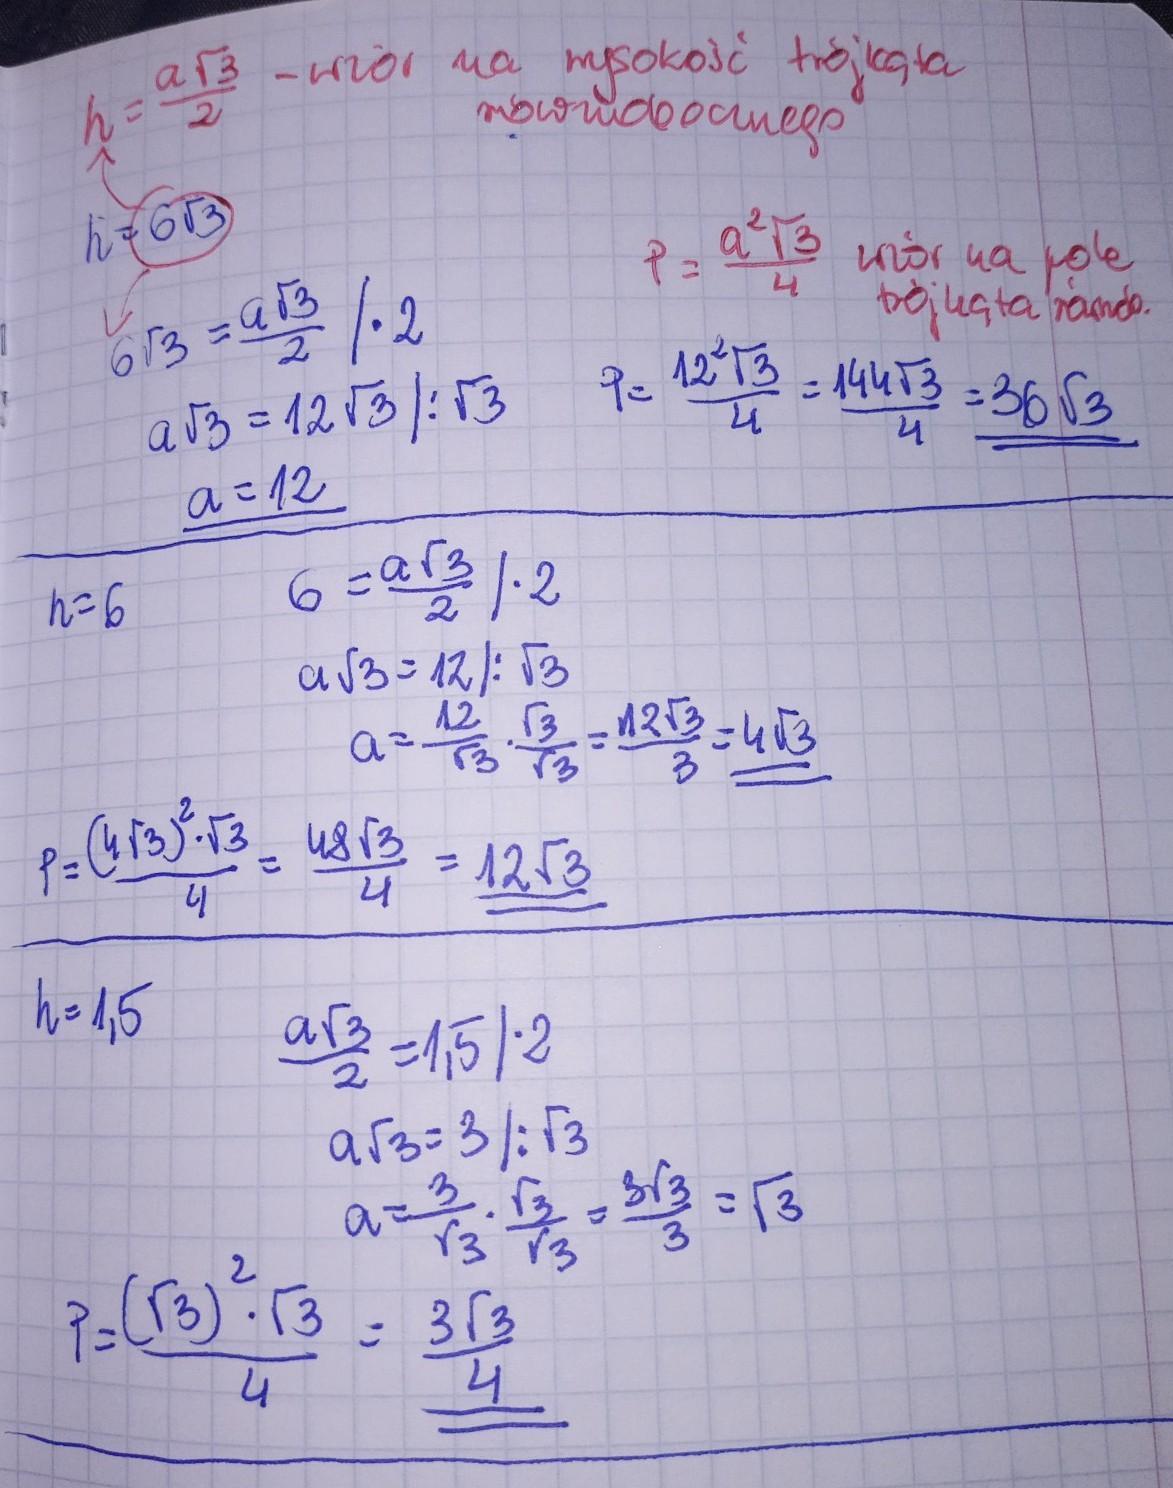 h = a√3/2 - wzór na wysokość trójkąta
równobocznego
h = 6√3
P = a²√3/4 wzór na pole
trójkąta równob.
6√3 = a√3/2 /·2
a√3 = 12√3 /:√3
a = 12
P = 12²√3/4 = 144√3/4 = 36√3
h=6
6 = a√3/2 /·2
a√3 = 12 /:√3
a = 12/√3 · √3/√3 = 12√3/3 = 4√3
P = (4√3)²·√3/4 = 48√3/4 = 12√3
h=1,5
a√3/2 = 1,5 /·2
a√3 = 3 /:√3
a = 3/√3 · √3/√3 = 3√3/3 = √3
P = (√3)²·√3/4 = 3√3/4